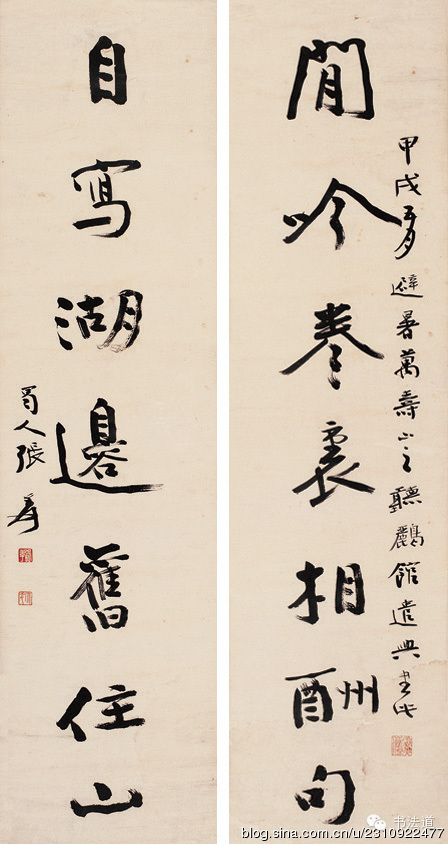 閒吟卷裏相酬句
甲戌五月避暑萬壽山之聽鸝館遣興書此
自寫湖邊舊住山
蜀人張爰
书法道
blog.sina.com.cn/u/2310922477